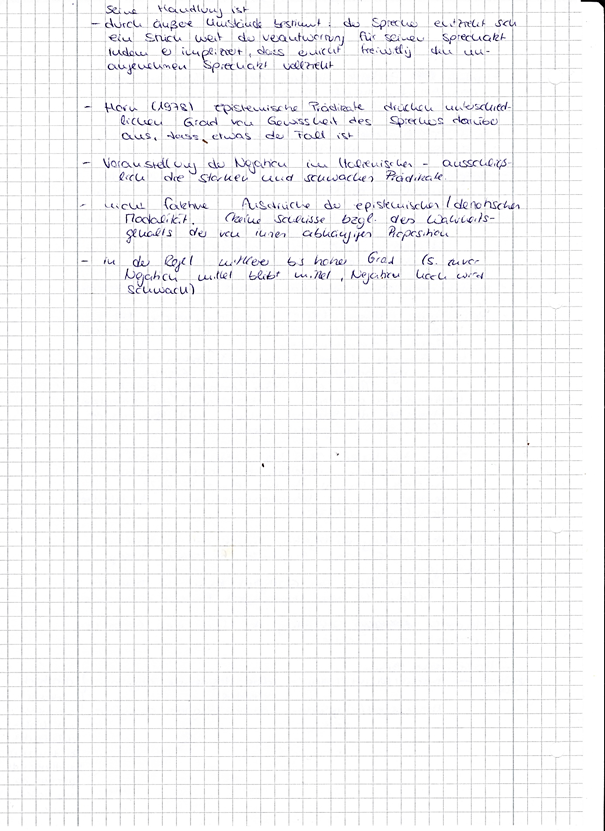 seine Handlung ist
- durch äußere Umstände bestimmt: der Sprecher entzieht sich
ein Stück weit der Verantwortung für seinen Sprechakt
indem er impliziert, dass er nicht freiwillig den un-
angenehmen Sprechakt vollzieht
- Horn (1978) epistemische Prädikate drücken unterschied-
lichen Grad von Gewissheit des Sprechers darüber
aus, dass etwas der Fall ist
- Voranstellung der Negation im Italienischen - ausschließ-
lich die starken und schwachen Prädikate
- nicht faktive Ausdrücke der epistemischen / deontischen
Modalität. Keine Schlüsse bzgl. des Wahrheits-
gehalts der von ihnen abhängigen Proposition
- in der Regel mittlerer bis hoher Grad (s. zuvor
Negation mittel bleibt mittel, Negation hoch wird
schwach)